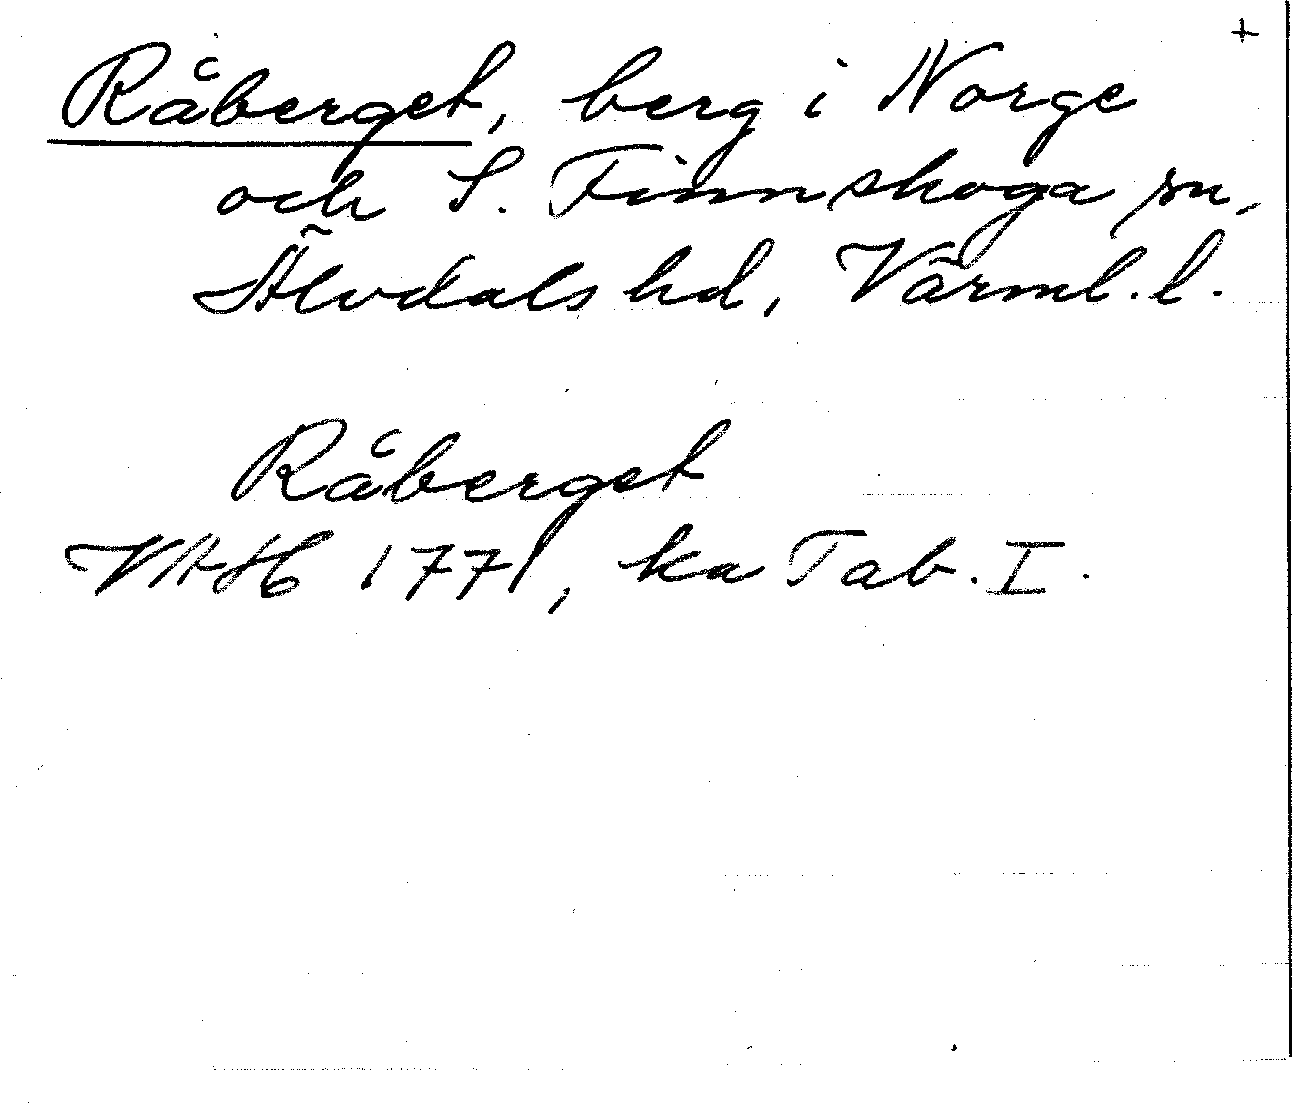 +
Råberget, berg i Norge
och S. Finnskoga sn,
Älvdals hd, Värml. l.
Råberget
VAH 1771, ka Tab. I.